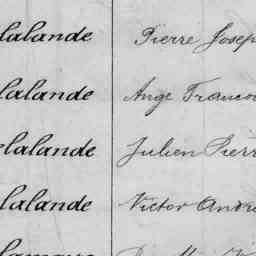 lalande Pierre Josep
lalande Ange Francoi
elalande Julien Pierr
lalande Victor André